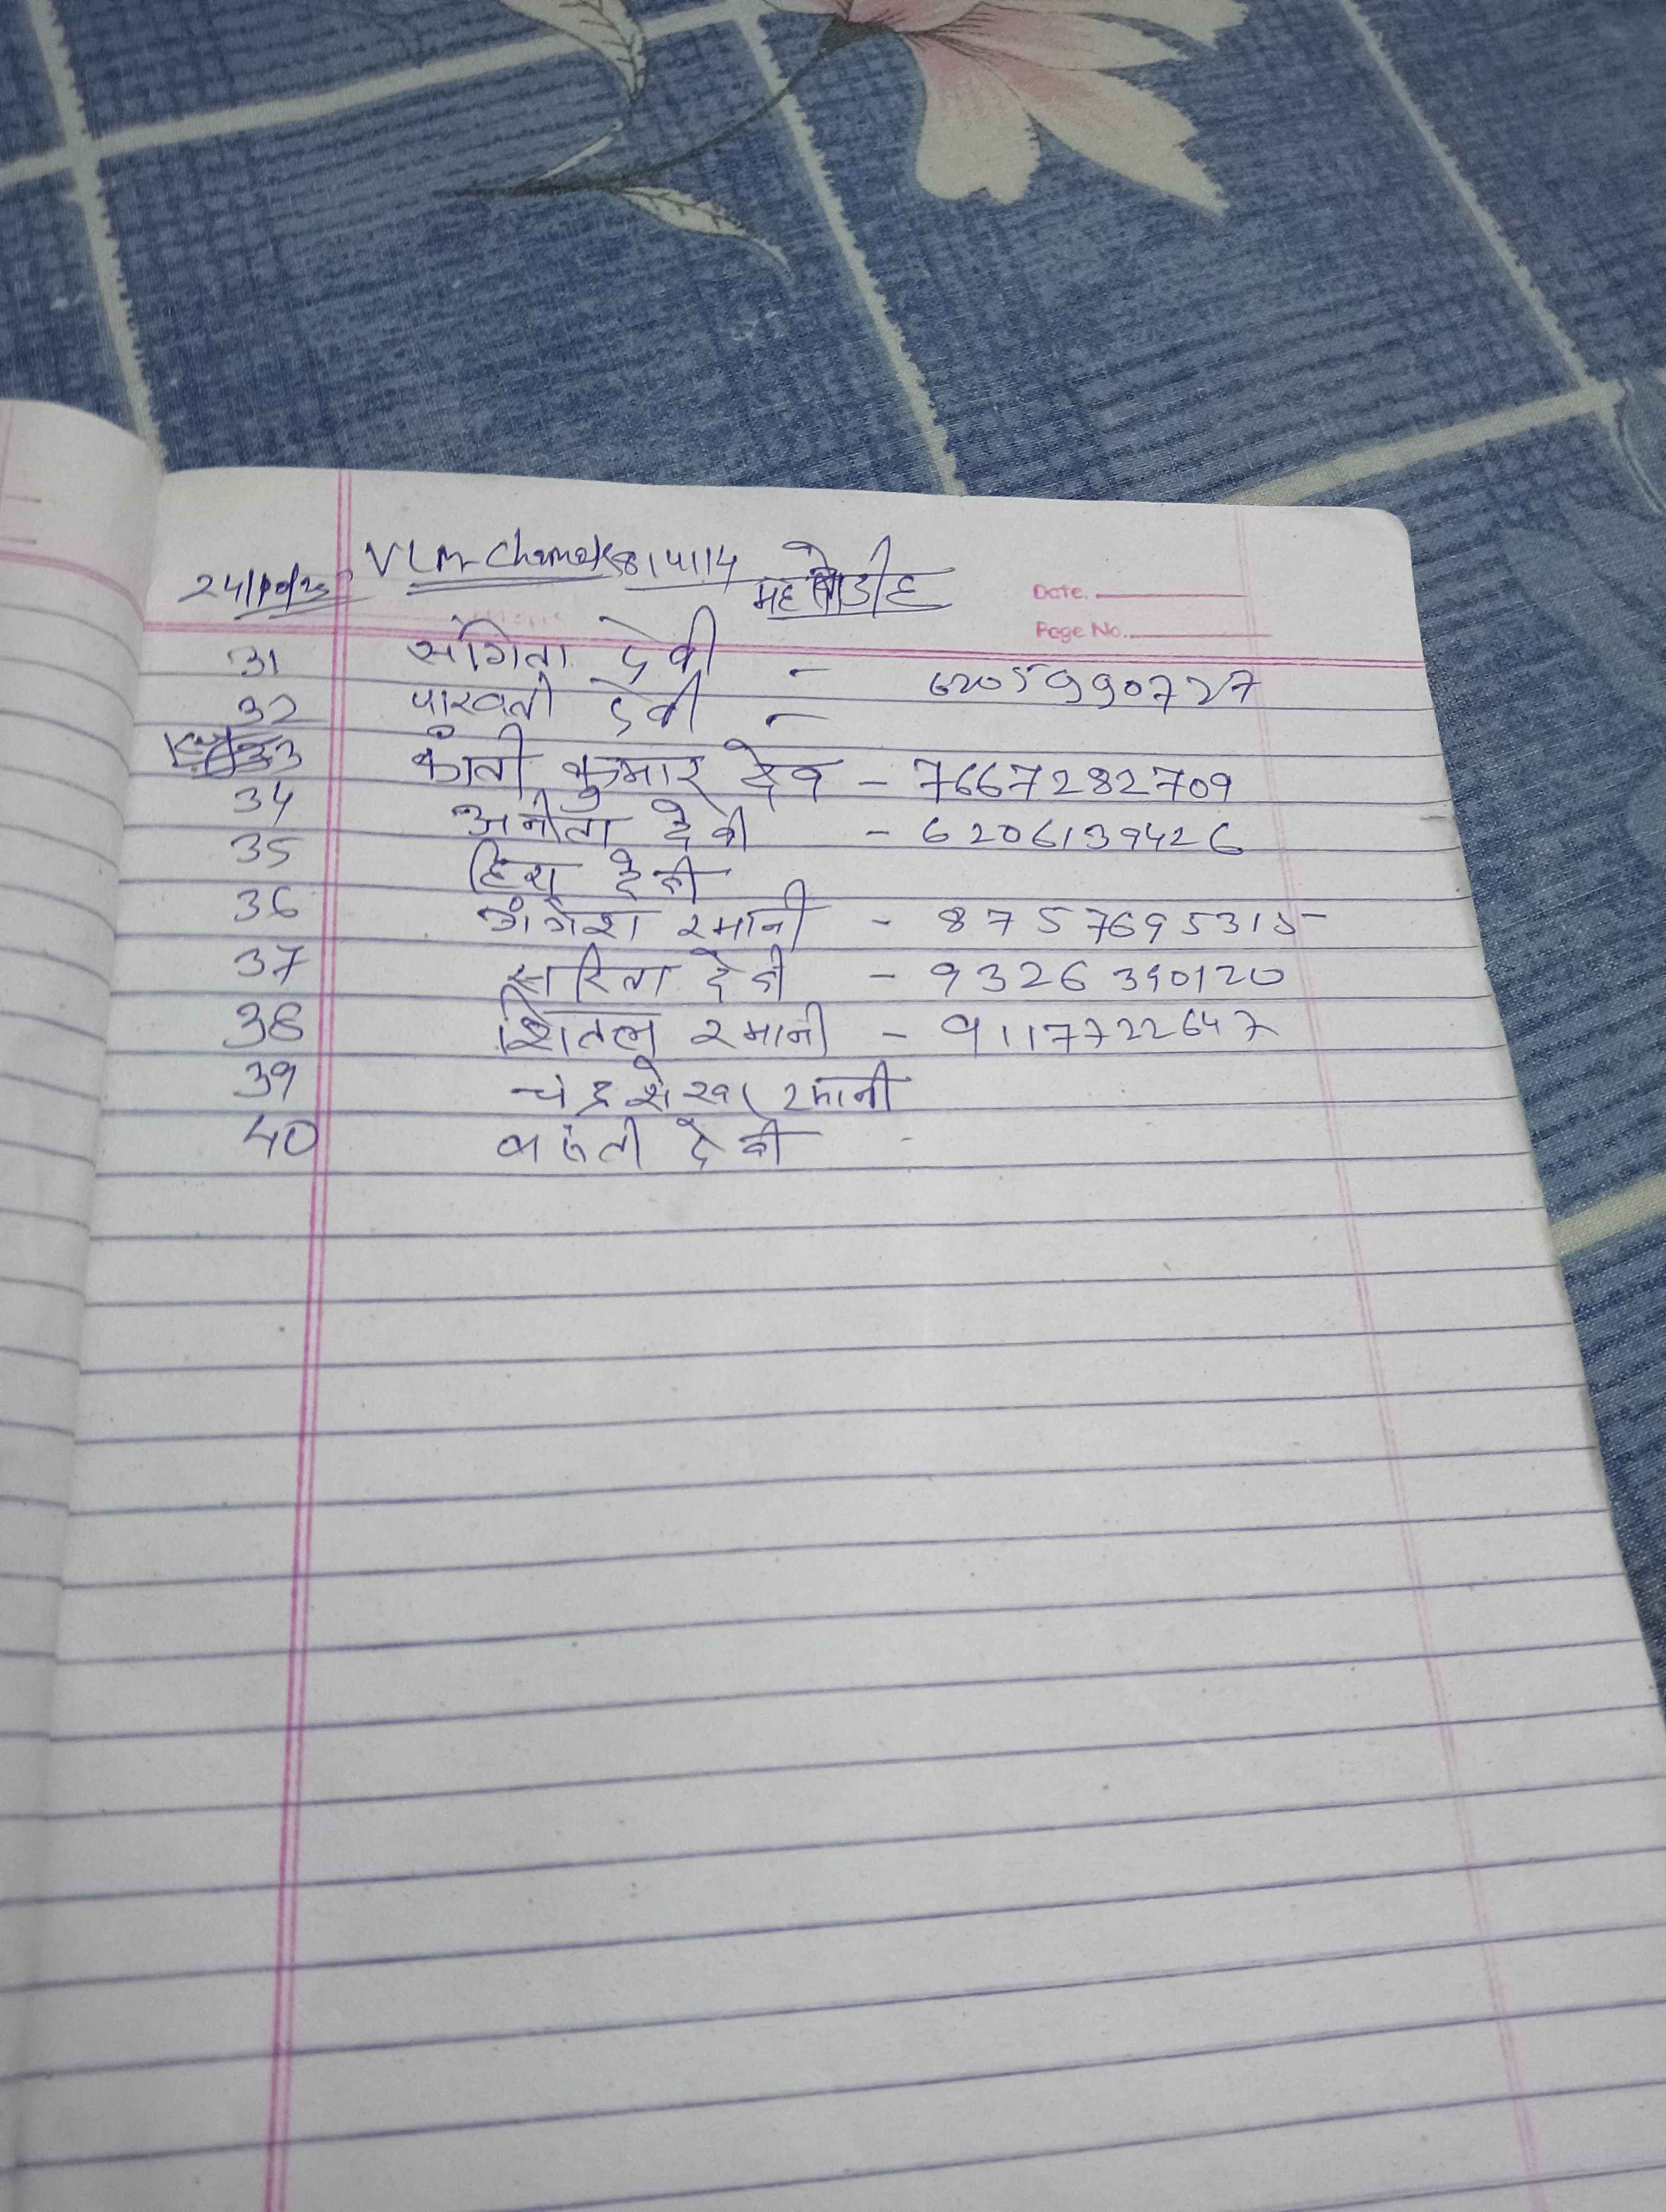 24/10/25 VLM-Chamak 814114 महतोडीह
Date.
Page No.
31 संगिता देवी - 6205990727
32 पारवती देवी -
33 कांती कुमार देव - 7667282709
34 अनीता देवी - 6206139426
35 देवी
36 रमानी - 8757695315
37 सरिता देवी - 9326390120
38 शितल रमानी - 9117722647
39 चंद्रशेखर रमानी
40 देवी